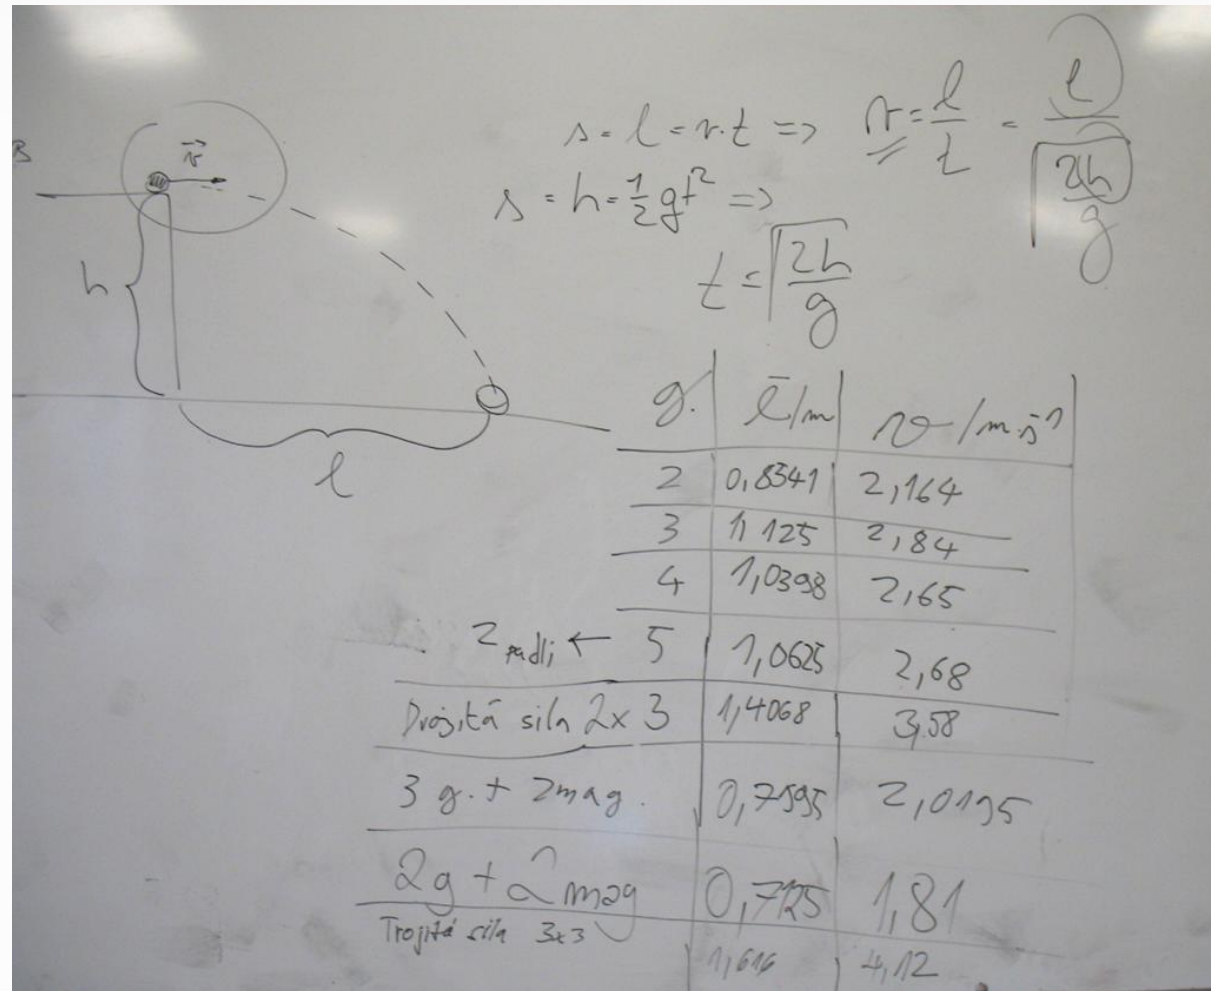 B
v⃗
h
l
s = l = v.t => v = l/t = l/√(2h/g)
s = h = 1/2 gt² =>
t = √(2h/g)
g. | l̄/m | v/m.s⁻¹
2 | 0,8541 | 2,164
3 | 1,125 | 2,84
4 | 1,0398 | 2,65
2 padli ← 5 | 1,0625 | 2,68
Dvojitá sila 2x 3 | 1,4068 | 3,58
3 g. + 2mag. | 0,7595 | 2,0195
2g + 2mag | 0,7125 | 1,81
Trojitá sila 3x3 | 1,616 | 4,12